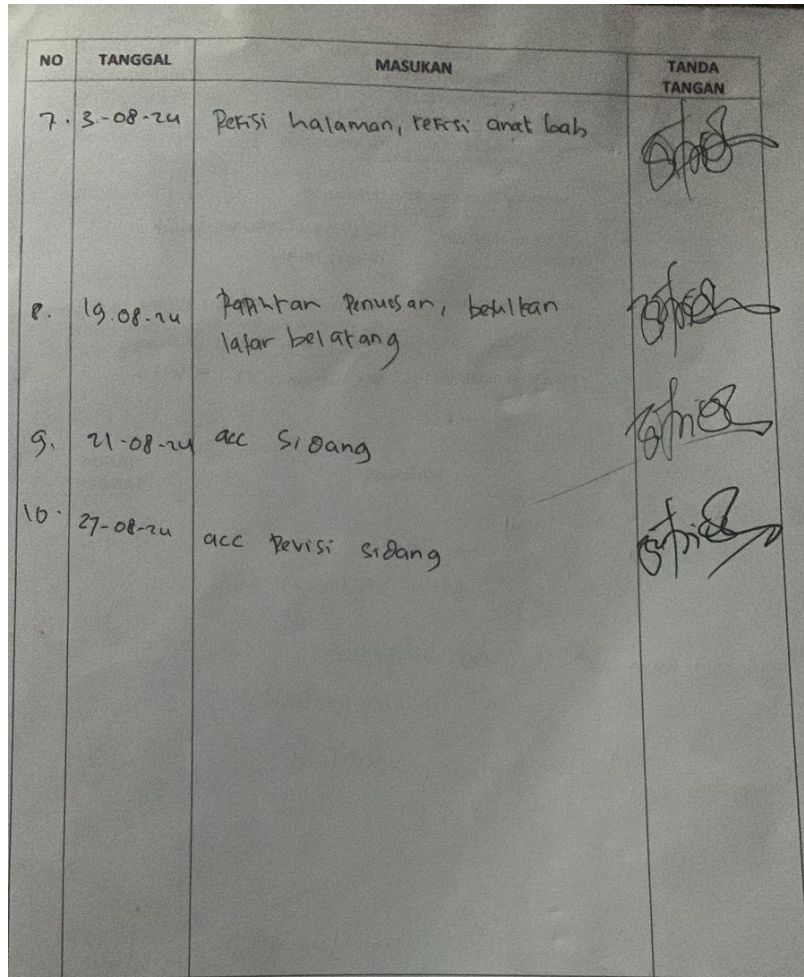 NO TANGGAL MASUKAN TANDA TANGAN
7. 3-08-24 Revisi halaman, revisi anak bab
8. 19.08-24 Rapihkan Penulisan, betulkan
latar belakang
9. 21-08-24 acc Sidang
10. 27-08-24 acc Revisi Sidang